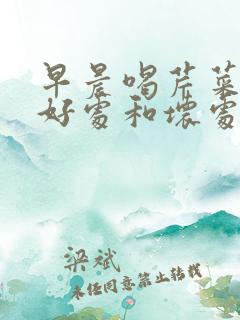 早晨喝芹菜
好处和坏处
梁斌
未经同意禁止转载